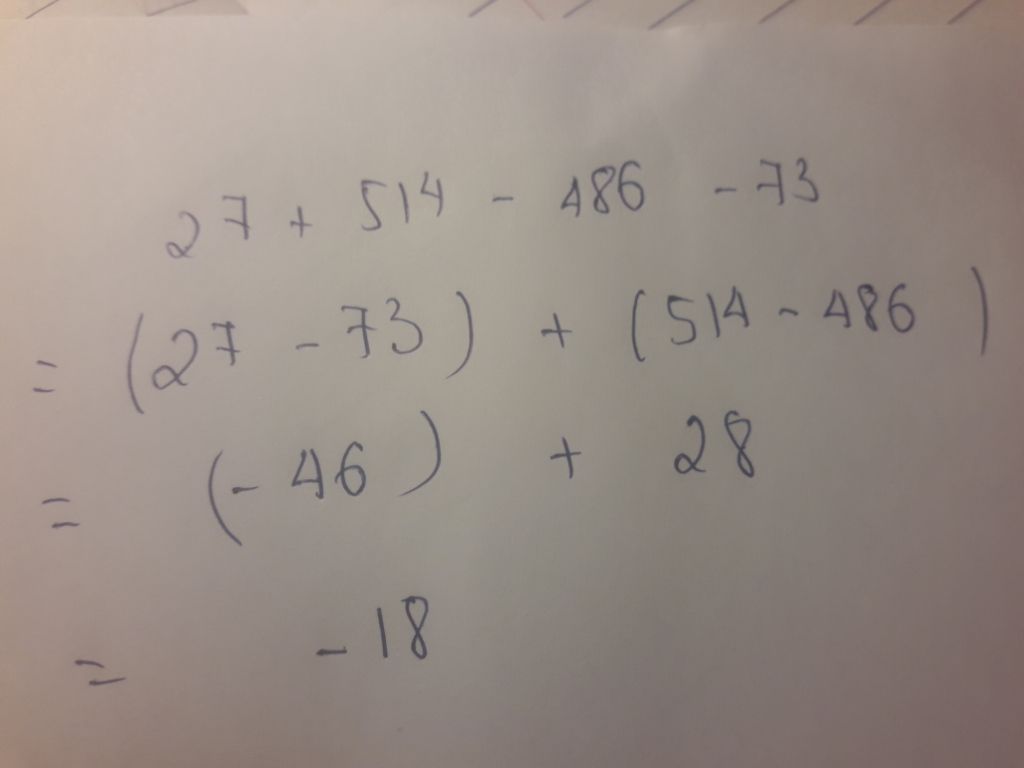 27 + 514 - 486 - 73
= (27 - 73) + (514 - 486)
= (-46) + 28
= -18